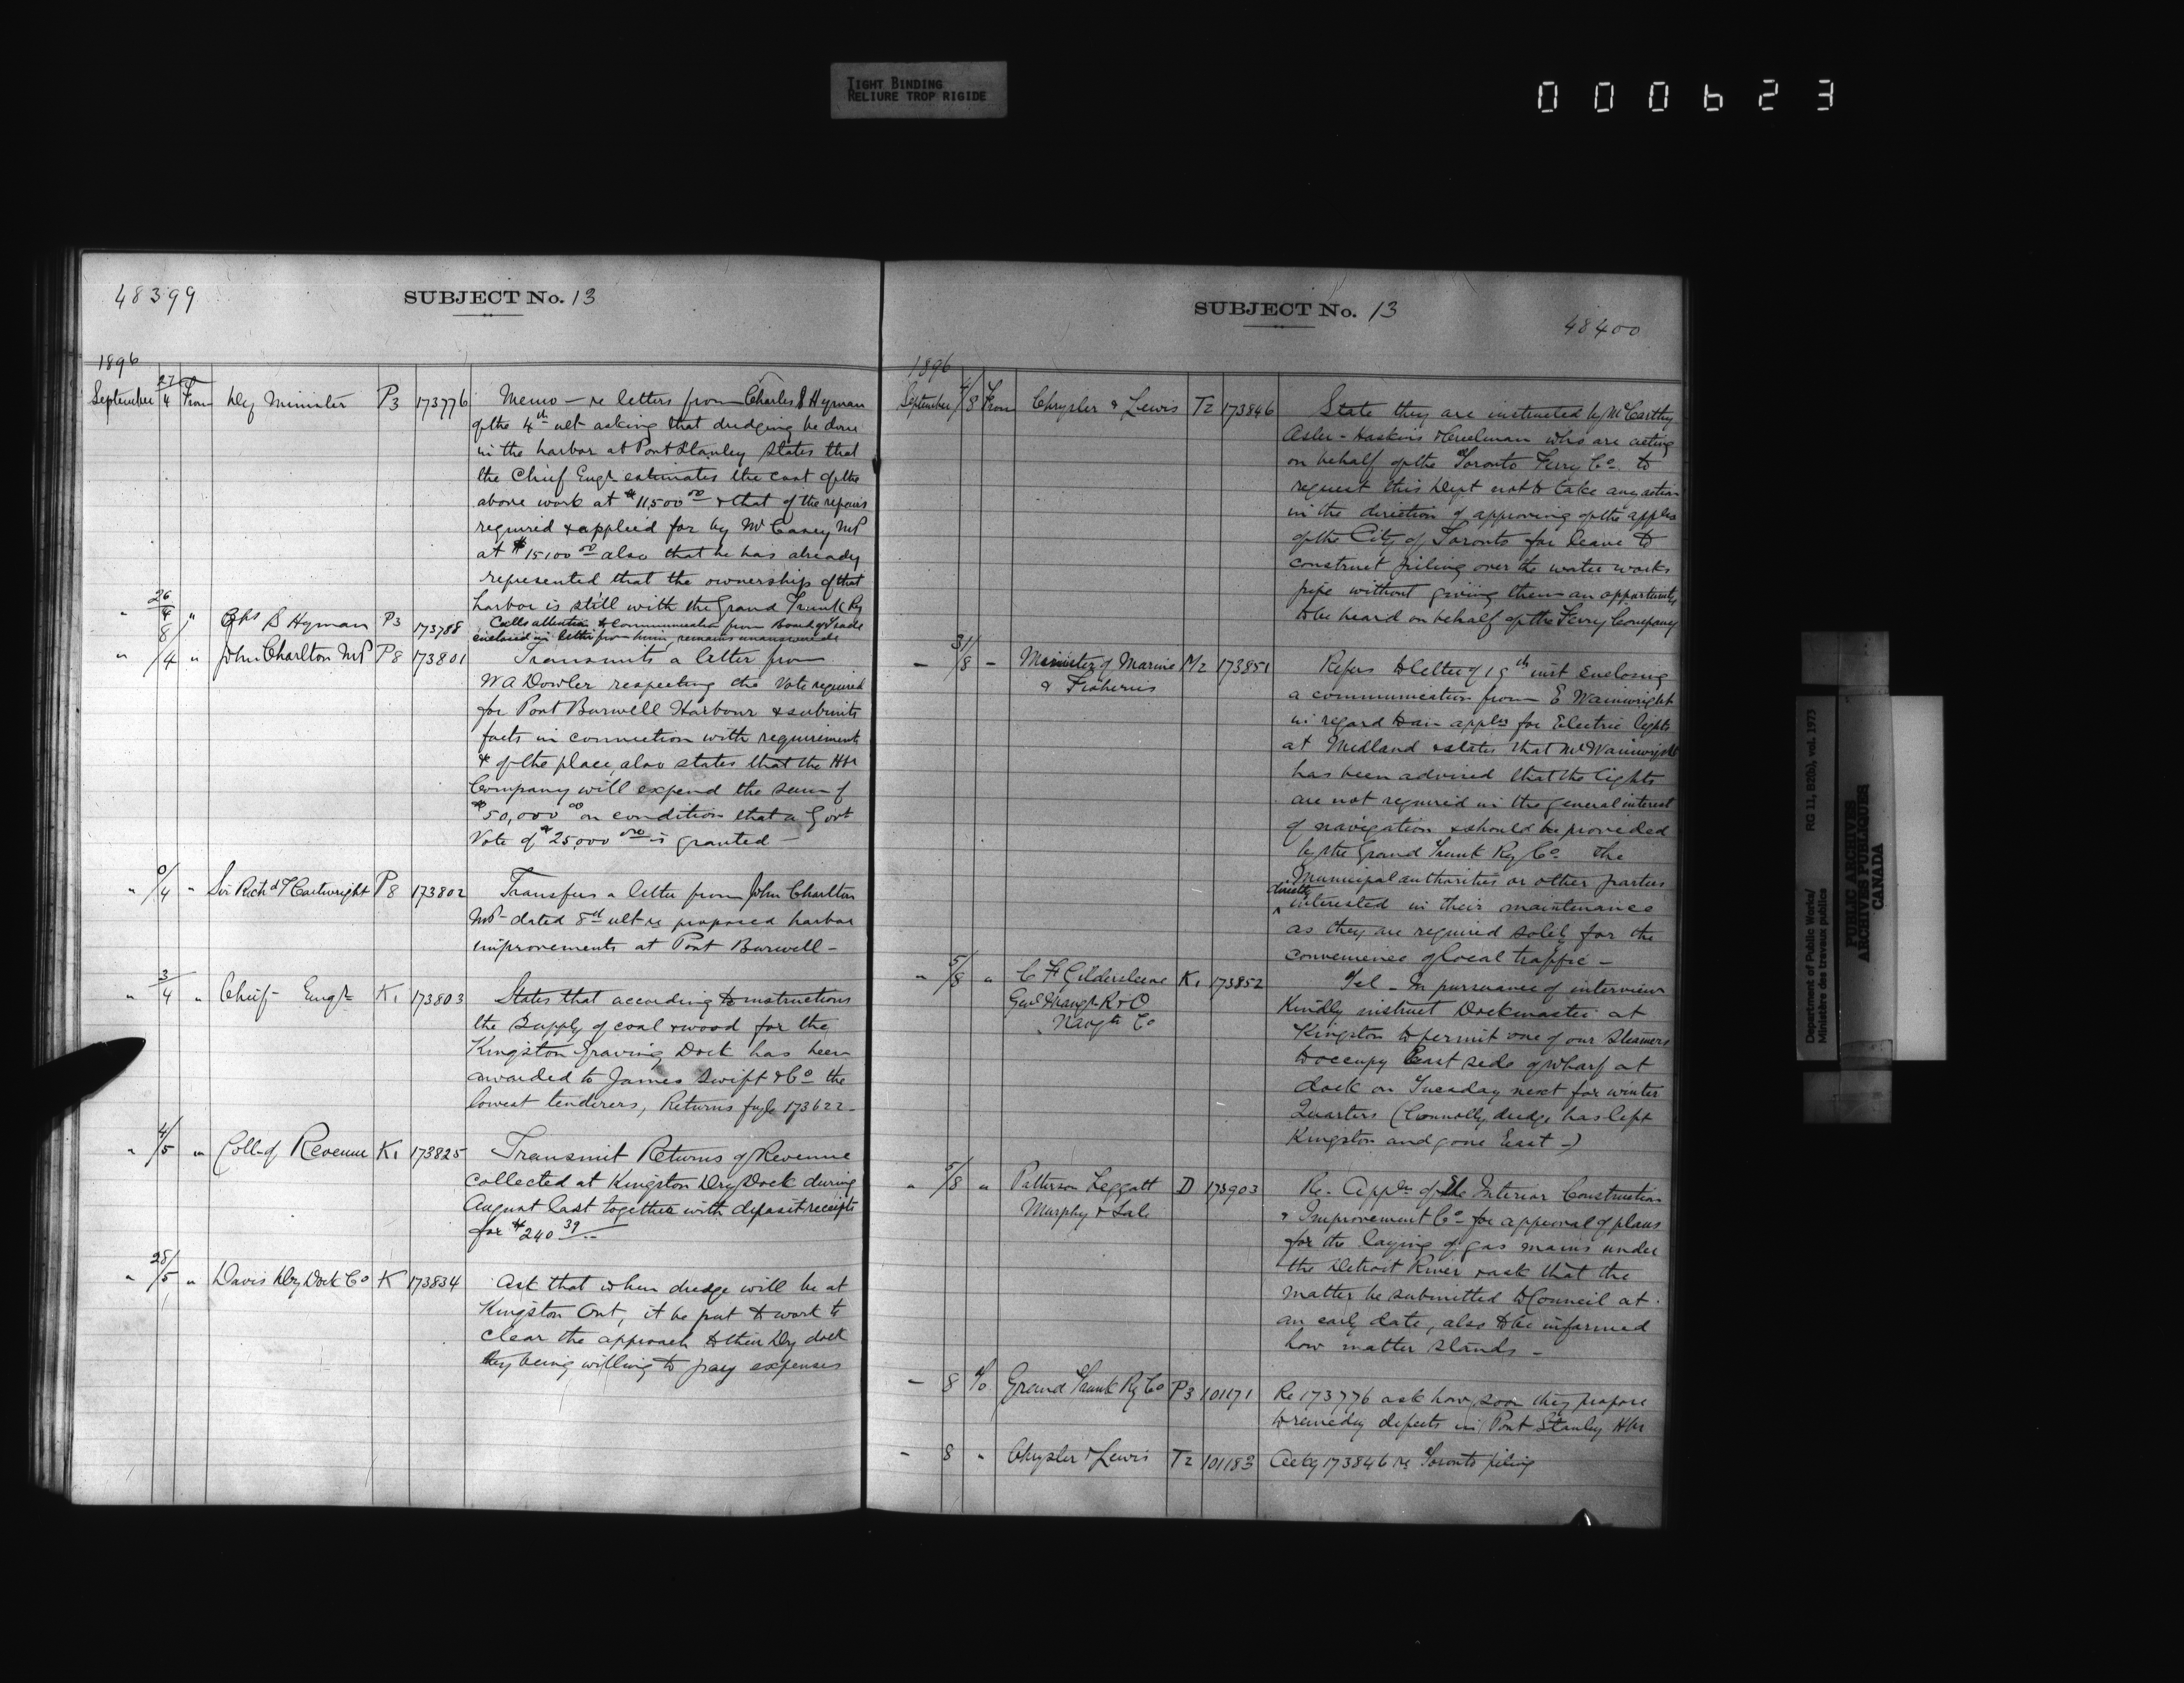 TIGHT BINDING
RELIURE TROP RIGIDE
000623
48399
SUBJECT No. 13
1896
September 27/4 From Dep Minister P3 173776 Memo - re letters from Charles S Hyman
of the 4th ult asking that dredging be done
in the harbor at Port Stanley States that
the Chief Engr estimates the cost of the
above work at $11,500 00 & that of the repairs
required & applied for by Mr Casey MP
at $15100 00 also that he has already
represented that the ownership of that
harbor is still with the Grand Trunk Ry
" 26/4 " Chs S Hyman P3 173788 Calls attention to Communication from Board of Trade
enclosed in letter from him, remains unanswered
" 8/4 " John Charlton MP P8 173801 Transmits a letter from
W A Dowler respecting the Vote required
for Port Burwell Harbour & submits
facts in connection with requirements
& of the place, also states that the Hbr
Company will expend the sum of
$50,000 00 on condition that a Govt
Vote of $25,000 00 is granted -
" 0/4 " Sir Richd J Cartwright P8 173802 Transfers a letter from John Charlton
MP - dated 8th ult re proposed harbor
improvements at Port Burwell -
" 3/4 " Chief Engr K1 173803 States that according to instructions
the Supply of coal & wood for the
Kingston Graving Dock has been
awarded to James Swift & Co the
lowest tenderers, Returns fyle 173622 -
" 4/5 " Coll of Revenue K1 173825 Transmit Returns of Revenue
collected at Kingston Dry Dock during
August last together with deposit receipts
for $240 39
" 28/5 " Davis Dry Dock Co K 173834 Ask that when dredge will be at
Kingston Ont, it be put to work to
clear the approach to their Dry dock
they being willing to pay expenses
SUBJECT No. 13
48400
1896
September 4/8 From Chrysler & Lewis T2 173846 State they are instructed by McCarthy
Osler - Hoskins & Creelman who are acting
on behalf of the Toronto Ferry Co. to
request this Dept not to take any action
in the direction of approving of the appln
of the City of Toronto for leave to
construct piling over the water works
pipe without giving them an opportunity
to be heard on behalf of the Ferry Company
- 31/8 - Minister of Marine M2 173851 Refers to letter of 19th inst enclosing
& Fisheries
a communication from E Wainwright
in regard to an appln for Electric lights
at Midland & states that Mr Wainwright
has been advised that the lights
are not required in the general interest
of navigation & should be provided
by the Grand Trunk Ry Co. The
Municipal authorities or other parties
directly
interested in their maintenance
as they are required solely for the
convenience of local traffic -
" 5/8 " C F Gildersleeve K1 173852 Tel - In pursuance of interview
Genl Mangr R & O
Navgtn Co
Kindly instruct Dockmaster at
Kingston to permit one of our Steamers
to occupy East side of wharf at
dock on Tuesday next for winter
Quarters (Connolly dredge has left
Kingston and gone East -)
" 5/8 " Patterson Leggatt D 173903 Re. Appln of the Interior Construction
Murphy & Sale
& Improvement Co - for approval of plans
for the laying of gas mains under
the Detroit River & ask that the
matter be submitted to Council at
an early date, also to be informed
how matter stands -
- 8 To Grand Trunk Ry Co P3 101171 Re 173776 ask how soon they propose
to remedy defects in Port Stanley Hbr
- 8 " Chrysler & Lewis T2 101183 Ackg 173846 re Toronto piling
Department of Public Works/
Ministère des travaux publics
RG 11, B2(b), vol. 1973
PUBLIC ARCHIVES
ARCHIVES PUBLIQUES
CANADA